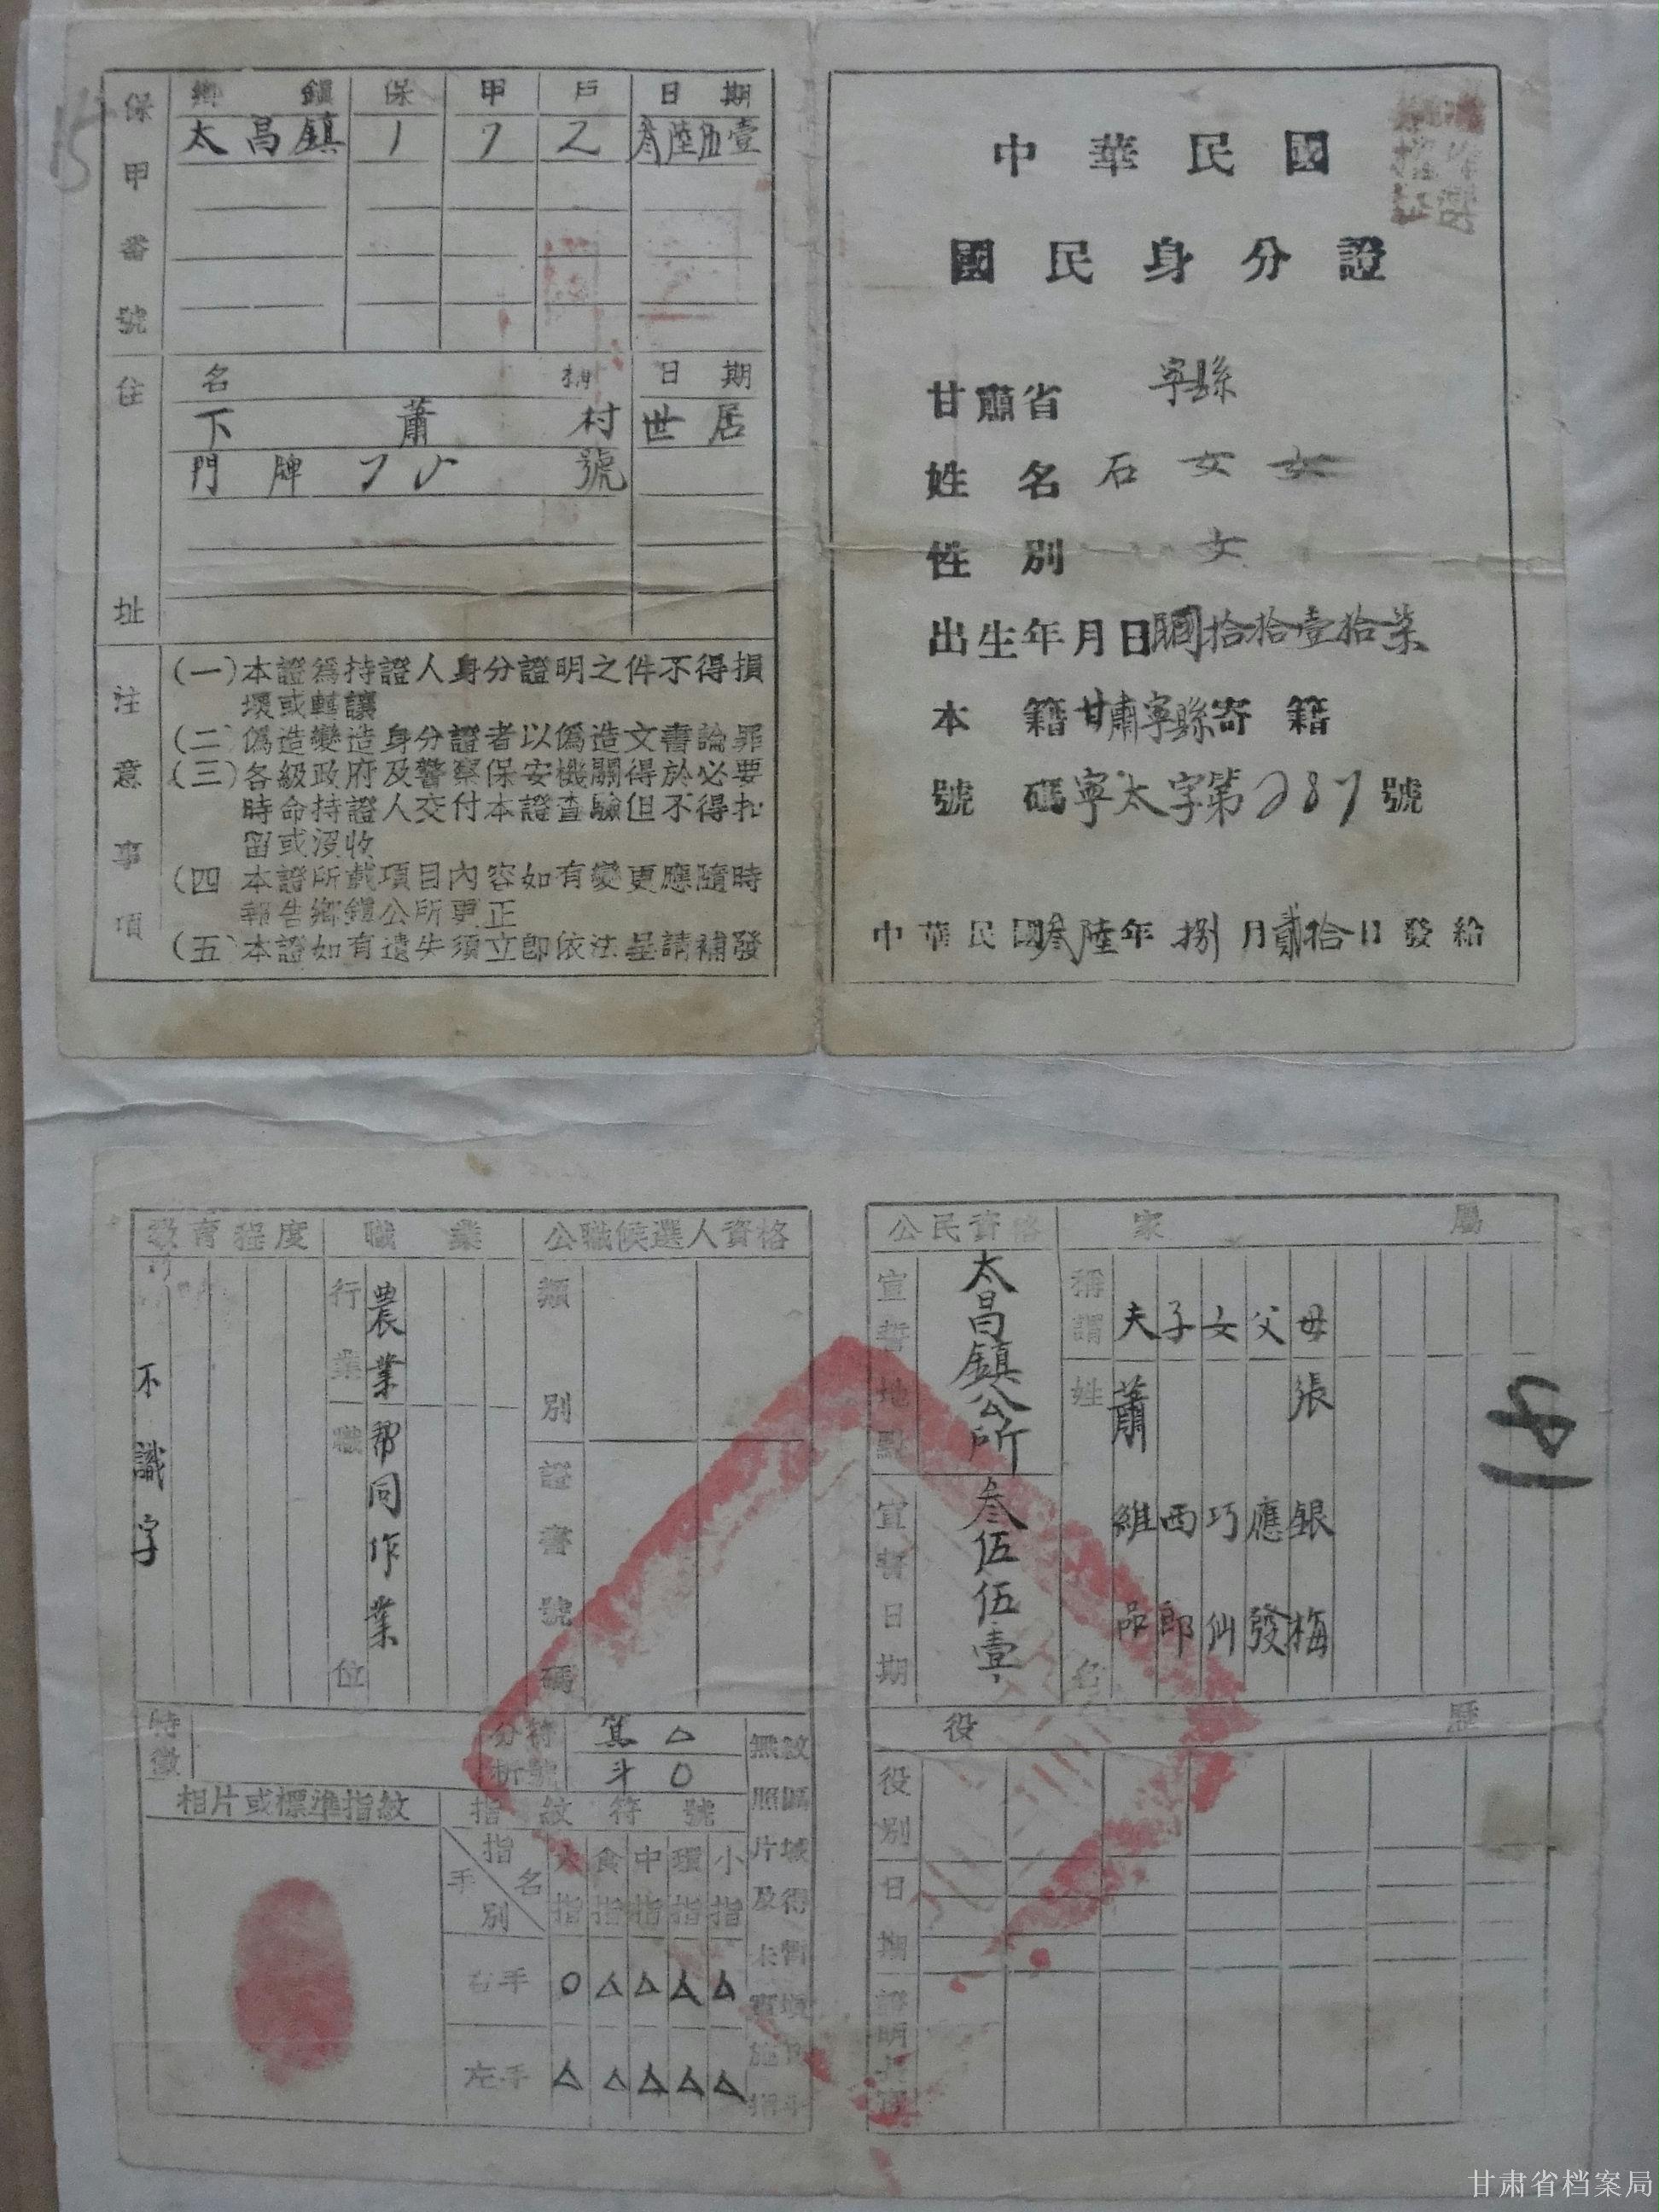 保甲番號
鄉鎮 保 甲 戶 日期
太昌鎮 1 7 2 叁陸伍壹
住址
名稱 日期
下蕭村 世居
門牌 號
注意事項
(一)本證為持證人身分證明之件不得損
壞或轉讓
(二)偽造變造身分證者以偽造文書論罪
(三)各級政府及警察保安機關得於必要
時命持證人交付本證查驗但不得扣
留或沒收
(四 本證所載項目內容如有變更應隨時
報告鄉鎮公所更正
(五)本證如有遺失須立即依法呈請補發
中華民國
國民身分證
甘肅省 寧縣
姓名 石女
性別 女
出生年月日 國拾拾壹拾柒
本籍 甘肅寧縣 寄籍
號碼 寧太字第287號
中華民國叁陸年捌月貳拾日發給
教育程度 職業 公職候選人資格
不識字
行業 農業
職位 幫同作業
類別
證書號碼
特徵
符號分析
箕 △
斗 O
相片或標準指紋
指紋符號
指名 手別
大指 食指 中指 環指 小指
右手 O △ △ △ △
左手 △ △ △ △ △
公民資格 家屬
宣誓地點 太昌鎮公所
宣誓日期 叁伍伍壹
稱謂 夫 子 女 父 母
姓名 蕭維品 西郎 巧仙 應發 張銀梅
役歷
役別
日期
證明
甘肃省档案局